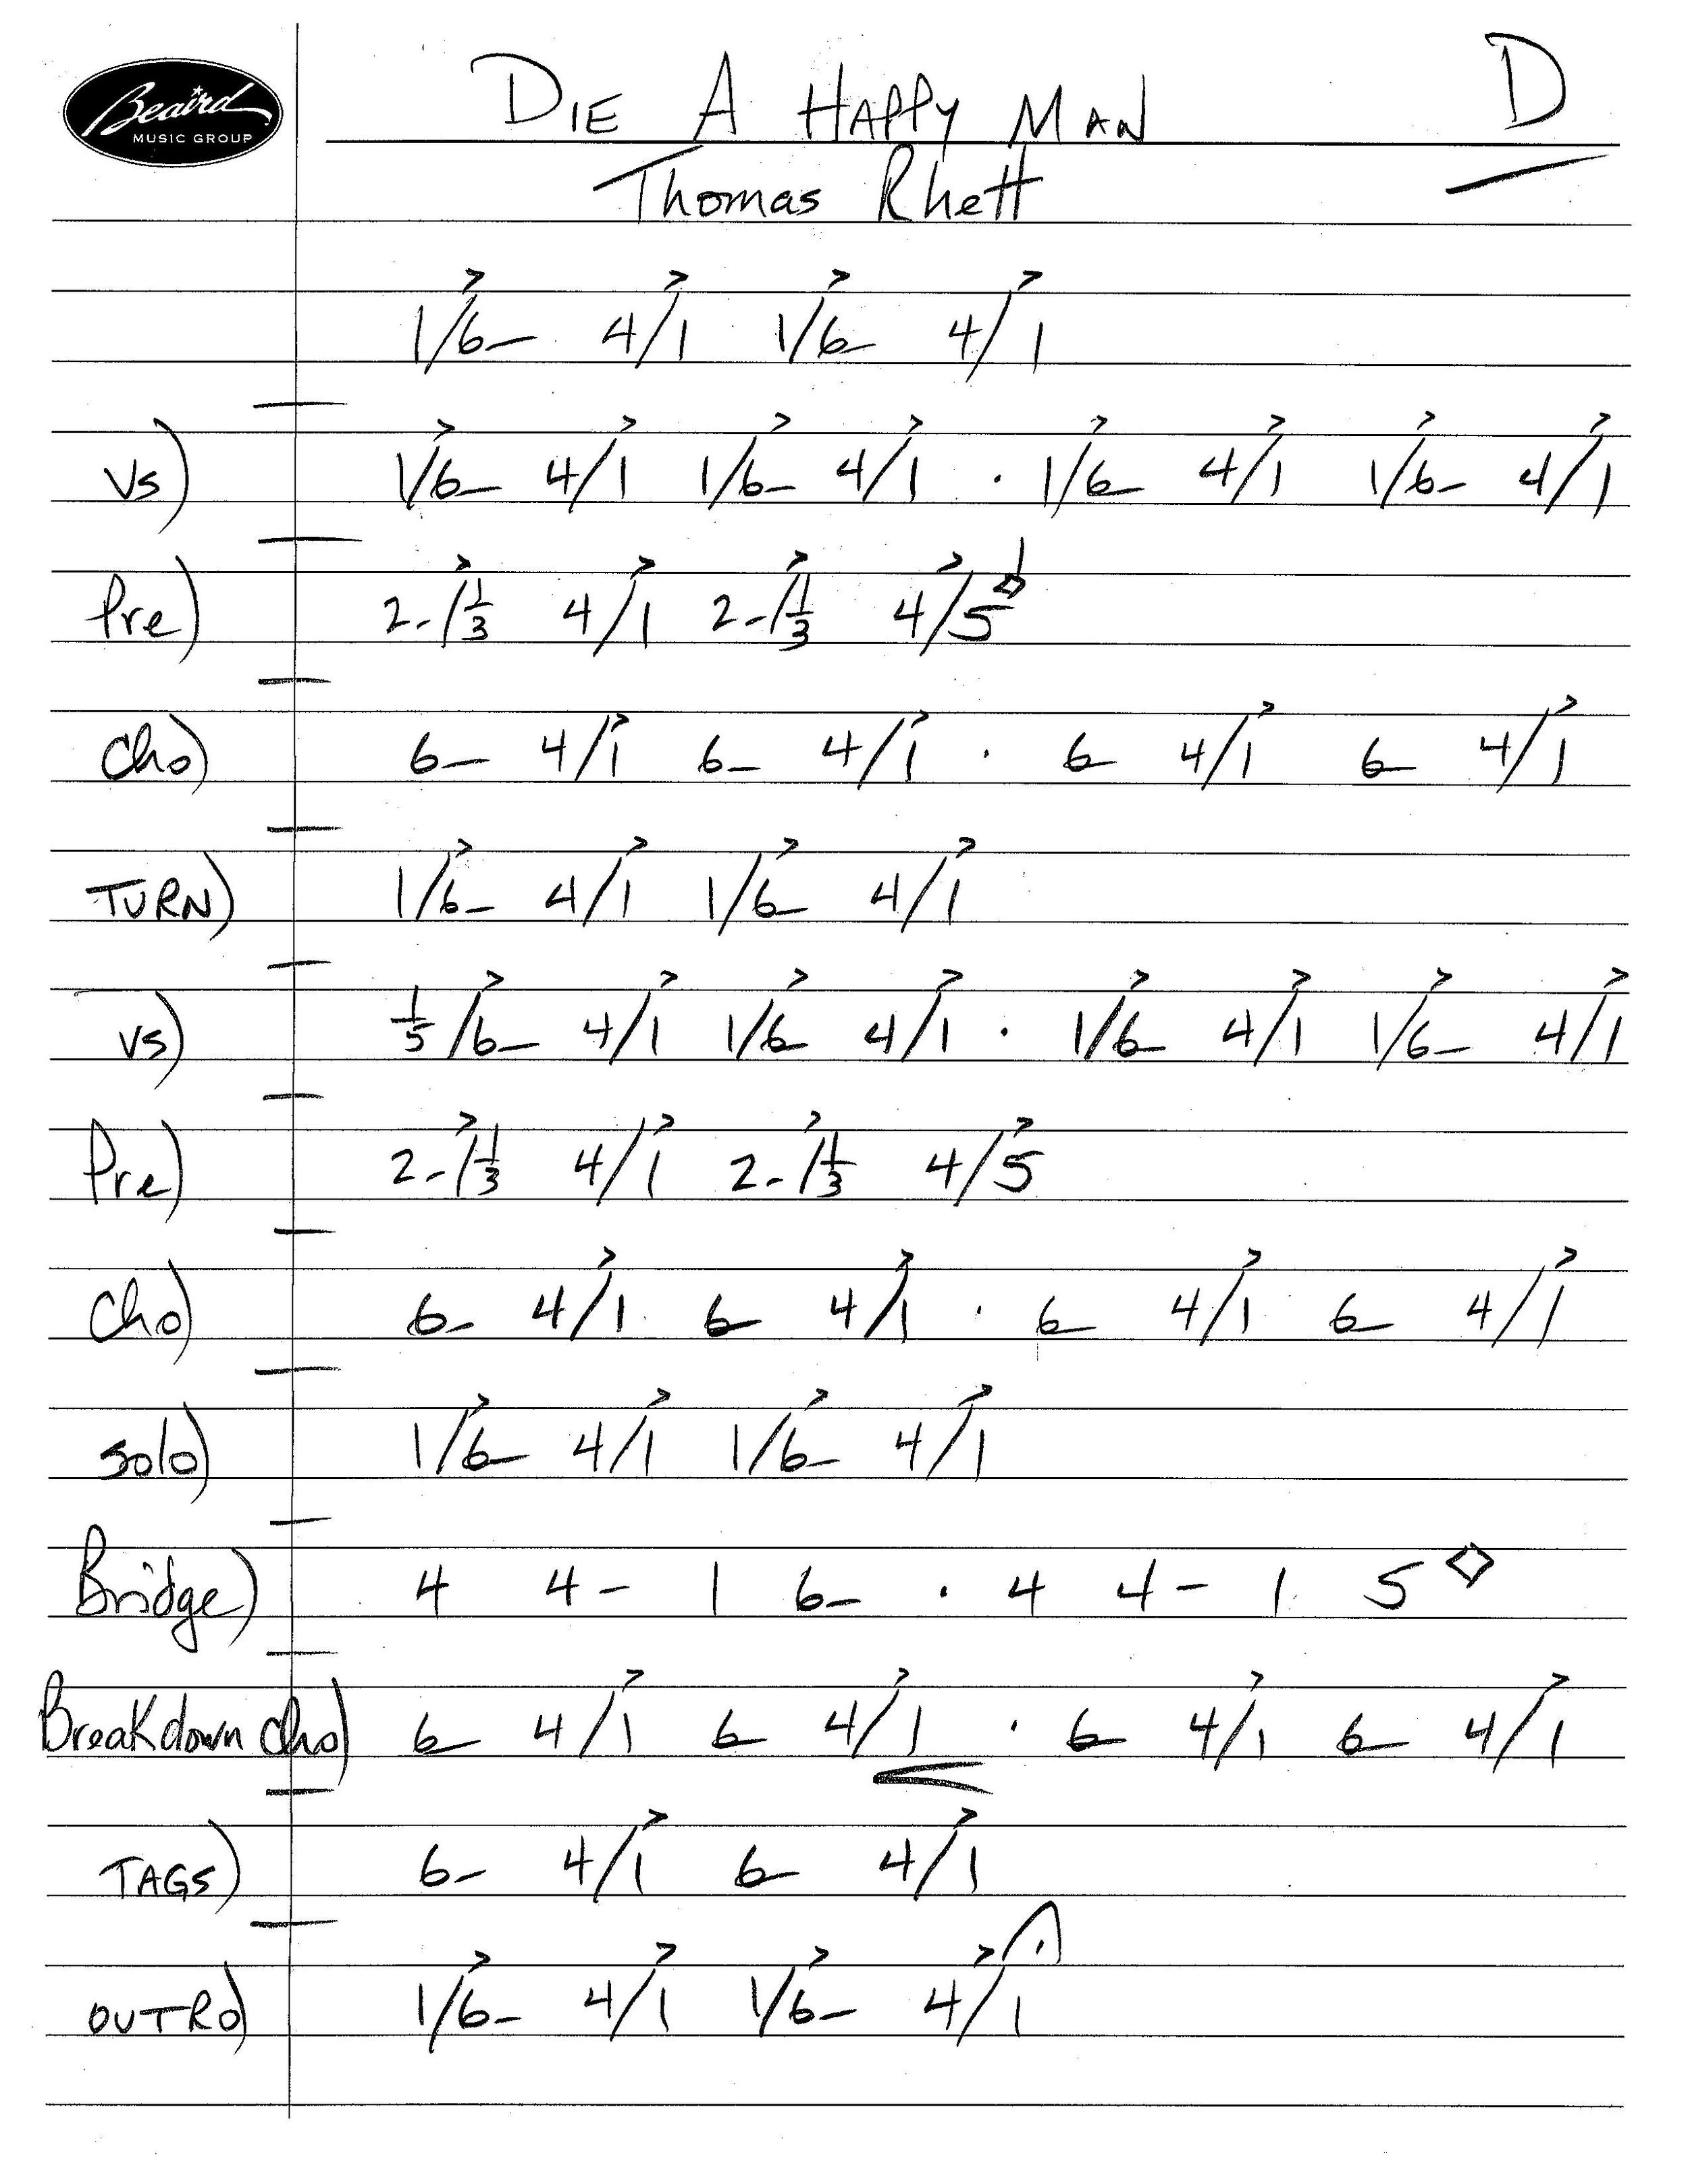 Beaird
MUSIC GROUP
DIE A HAPPY MAN D
Thomas Rhett
1/6- 4/1 1/6- 4/1
Vs) 1/6- 4/1 1/6- 4/1 . 1/6- 4/1 1/6- 4/1
Pre) 2-/1/3 4/1 2-/1/3 4/5◇
Cho) 6- 4/1 6- 4/1 . 6- 4/1 6- 4/1
TURN) 1/6- 4/1 1/6- 4/1
VS) 1/5/6- 4/1 1/6- 4/1 . 1/6- 4/1 1/6- 4/1
Pre) 2-/1/3 4/1 2-/1/3 4/5
Cho) 6- 4/1 6- 4/1 . 6- 4/1 6- 4/1
Solo) 1/6- 4/1 1/6- 4/1
Bridge) 4 4- 1 6- . 4 4- 1 5◇
Breakdown Cho) 6- 4/1 6- 4/1 . 6- 4/1 6- 4/1
TAGS) 6- 4/1 6- 4/1
OUTRO) 1/6- 4/1 1/6- 4/1